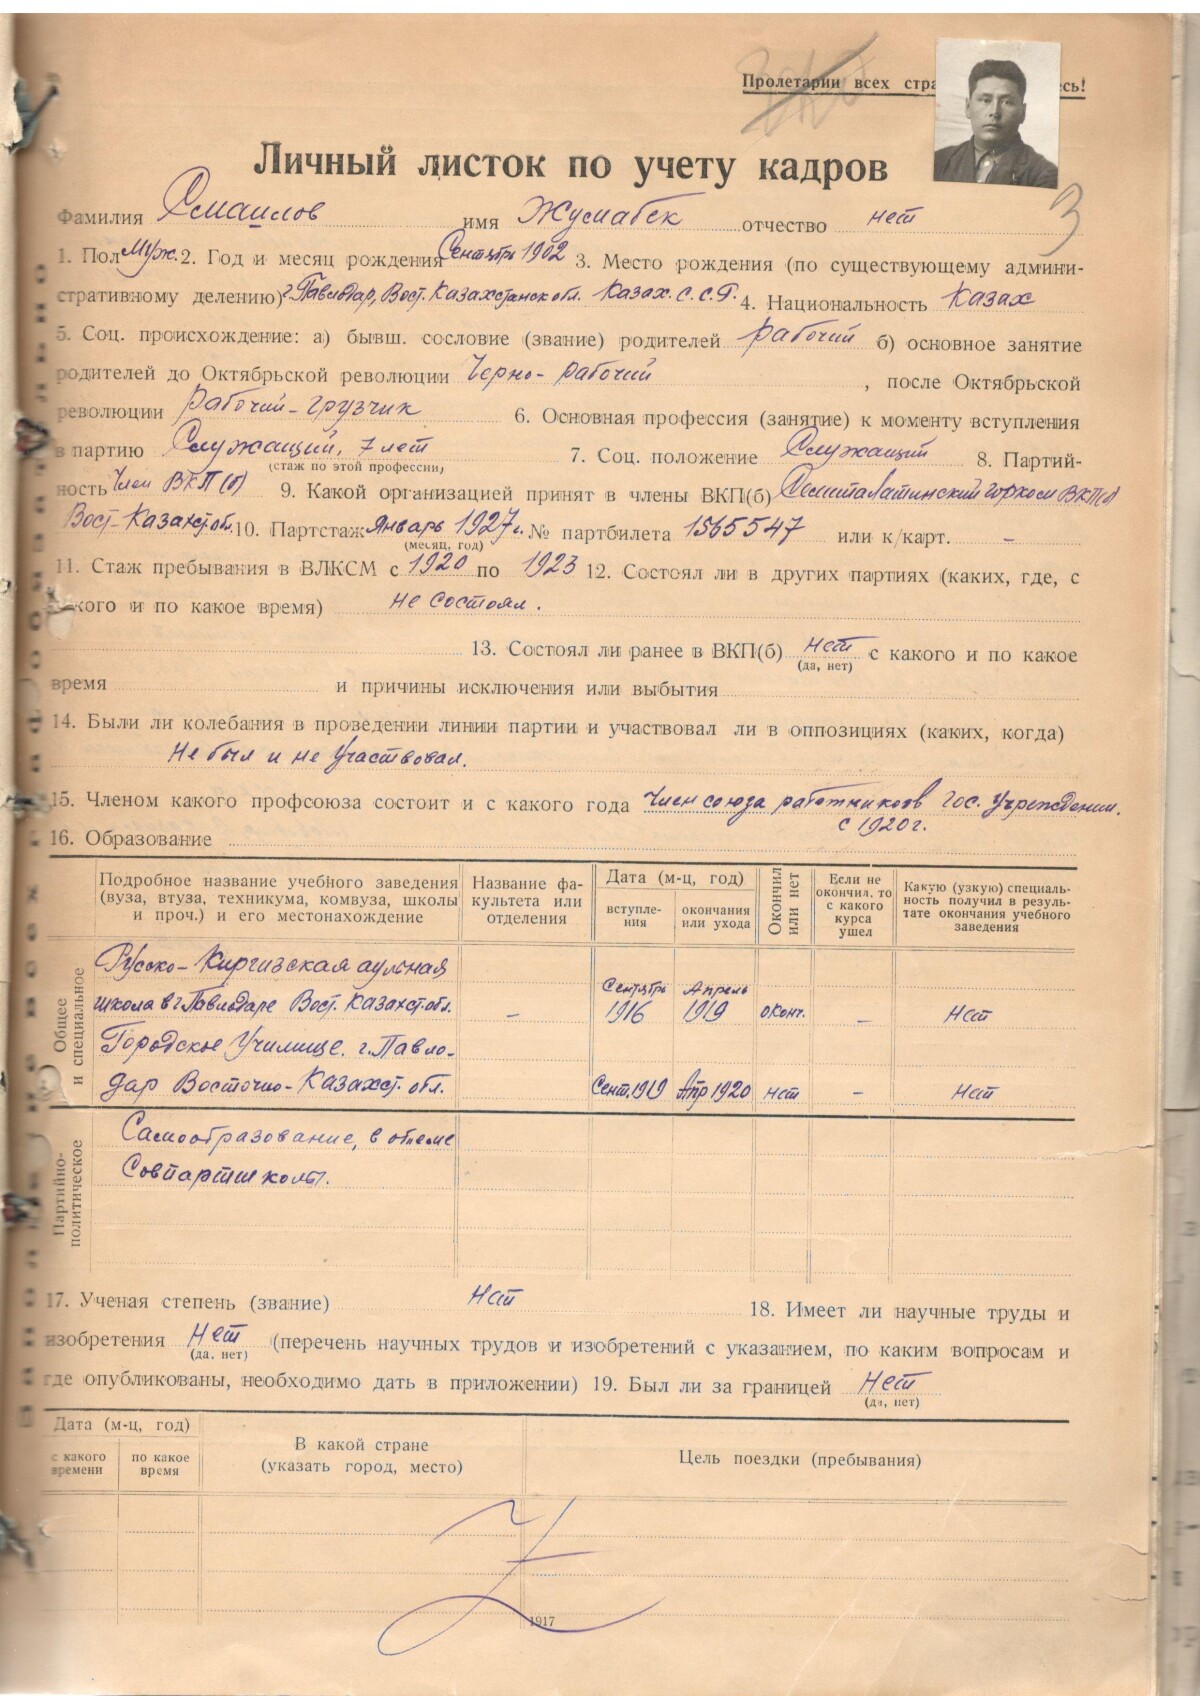 Пролетарии всех
Личный листок по учету кадров
Фамилия Смаилов имя Жумабек отчество нет
3
1. Пол Муж. 2. Год и месяц рождения Сентябрь 1902 3. Место рождения (по существующему админи-
стративному делению) г. Павлодар, Вост. Казахстанск обл. Казах. С.С.Р. 4. Национальность Казах
5. Соц. происхождение: а) бывш. сословие (звание) родителей рабочий б) основное занятие
родителей до Октябрьской революции Черно-рабочий , после Октябрьской
революции рабочий-грузчик 6. Основная профессия (занятие) к моменту вступления
в партию Служащий, 7 лет 7. Соц. положение Служащий 8. Партий-
(стаж по этой профессии)
ность Член ВКП(б) 9. Какой организацией принят в члены ВКП(б) Семипалатинский горком ВКП(б)
Вост-Казахст. обл. 10. Партстаж Январь 1927 г. № партбилета 1565547 или к/карт. –
(месяц, год)
11. Стаж пребывания в ВЛКСМ с 1920 по 1923 12. Состоял ли в других партиях (каких, где, с
какого и по какое время) не состоял.
13. Состоял ли ранее в ВКП(б) нет с какого и по какое
(да, нет)
время и причины исключения или выбытия
14. Были ли колебания в проведении линии партии и участвовал ли в оппозициях (каких, когда)
не был и не участвовал.
15. Членом какого профсоюза состоит и с какого года Член союза работников Гос. Учреждении.
с 1920 г.
16. Образование
Подробное название учебного заведения (вуза, втуза, техникума, комвуза, школы и проч.) и его местонахождение
Название факультета или отделения
Дата (м-ц, год)
вступле-
ния
окончания
или ухода
Окончил
или нет
Если не
окончил, то
с какого
курса
ушел
Какую (узкую) специаль-
ность получил в резуль-
тате окончания учебного
заведения
Общее
и специальное
Русско-Киргизская аульная
школа в г. Павлодаре Вост. Казахст. обл. – Сентябрь 1916 Апрель 1919 оконч. – Нет
Городское Училище. г. Павло-
дар Восточно-Казахст. обл. Сент. 1919 Апр 1920 нет – Нет
Партийно-
политическое
Самообразование, в объеме
Совпартшколы.
17. Ученая степень (звание) Нет 18. Имеет ли научные труды и
изобретения Нет (перечень научных трудов и изобретений с указанием, по каким вопросам и
(да, нет)
где опубликованы, необходимо дать в приложении) 19. Был ли за границей Нет
(да, нет)
Дата (м-ц, год)
с какого
времени
по какое
время
В какой стране
(указать город, место)
Цель поездки (пребывания)
1917